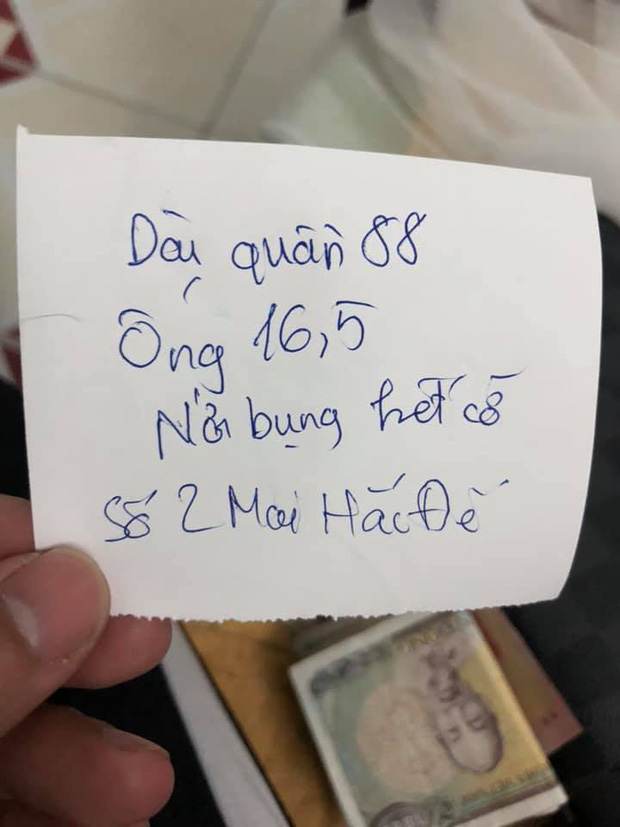 Dài quần 88
Ống 16,5
Nới bụng hết cỡ
Số 2 Mai Hắc Đế